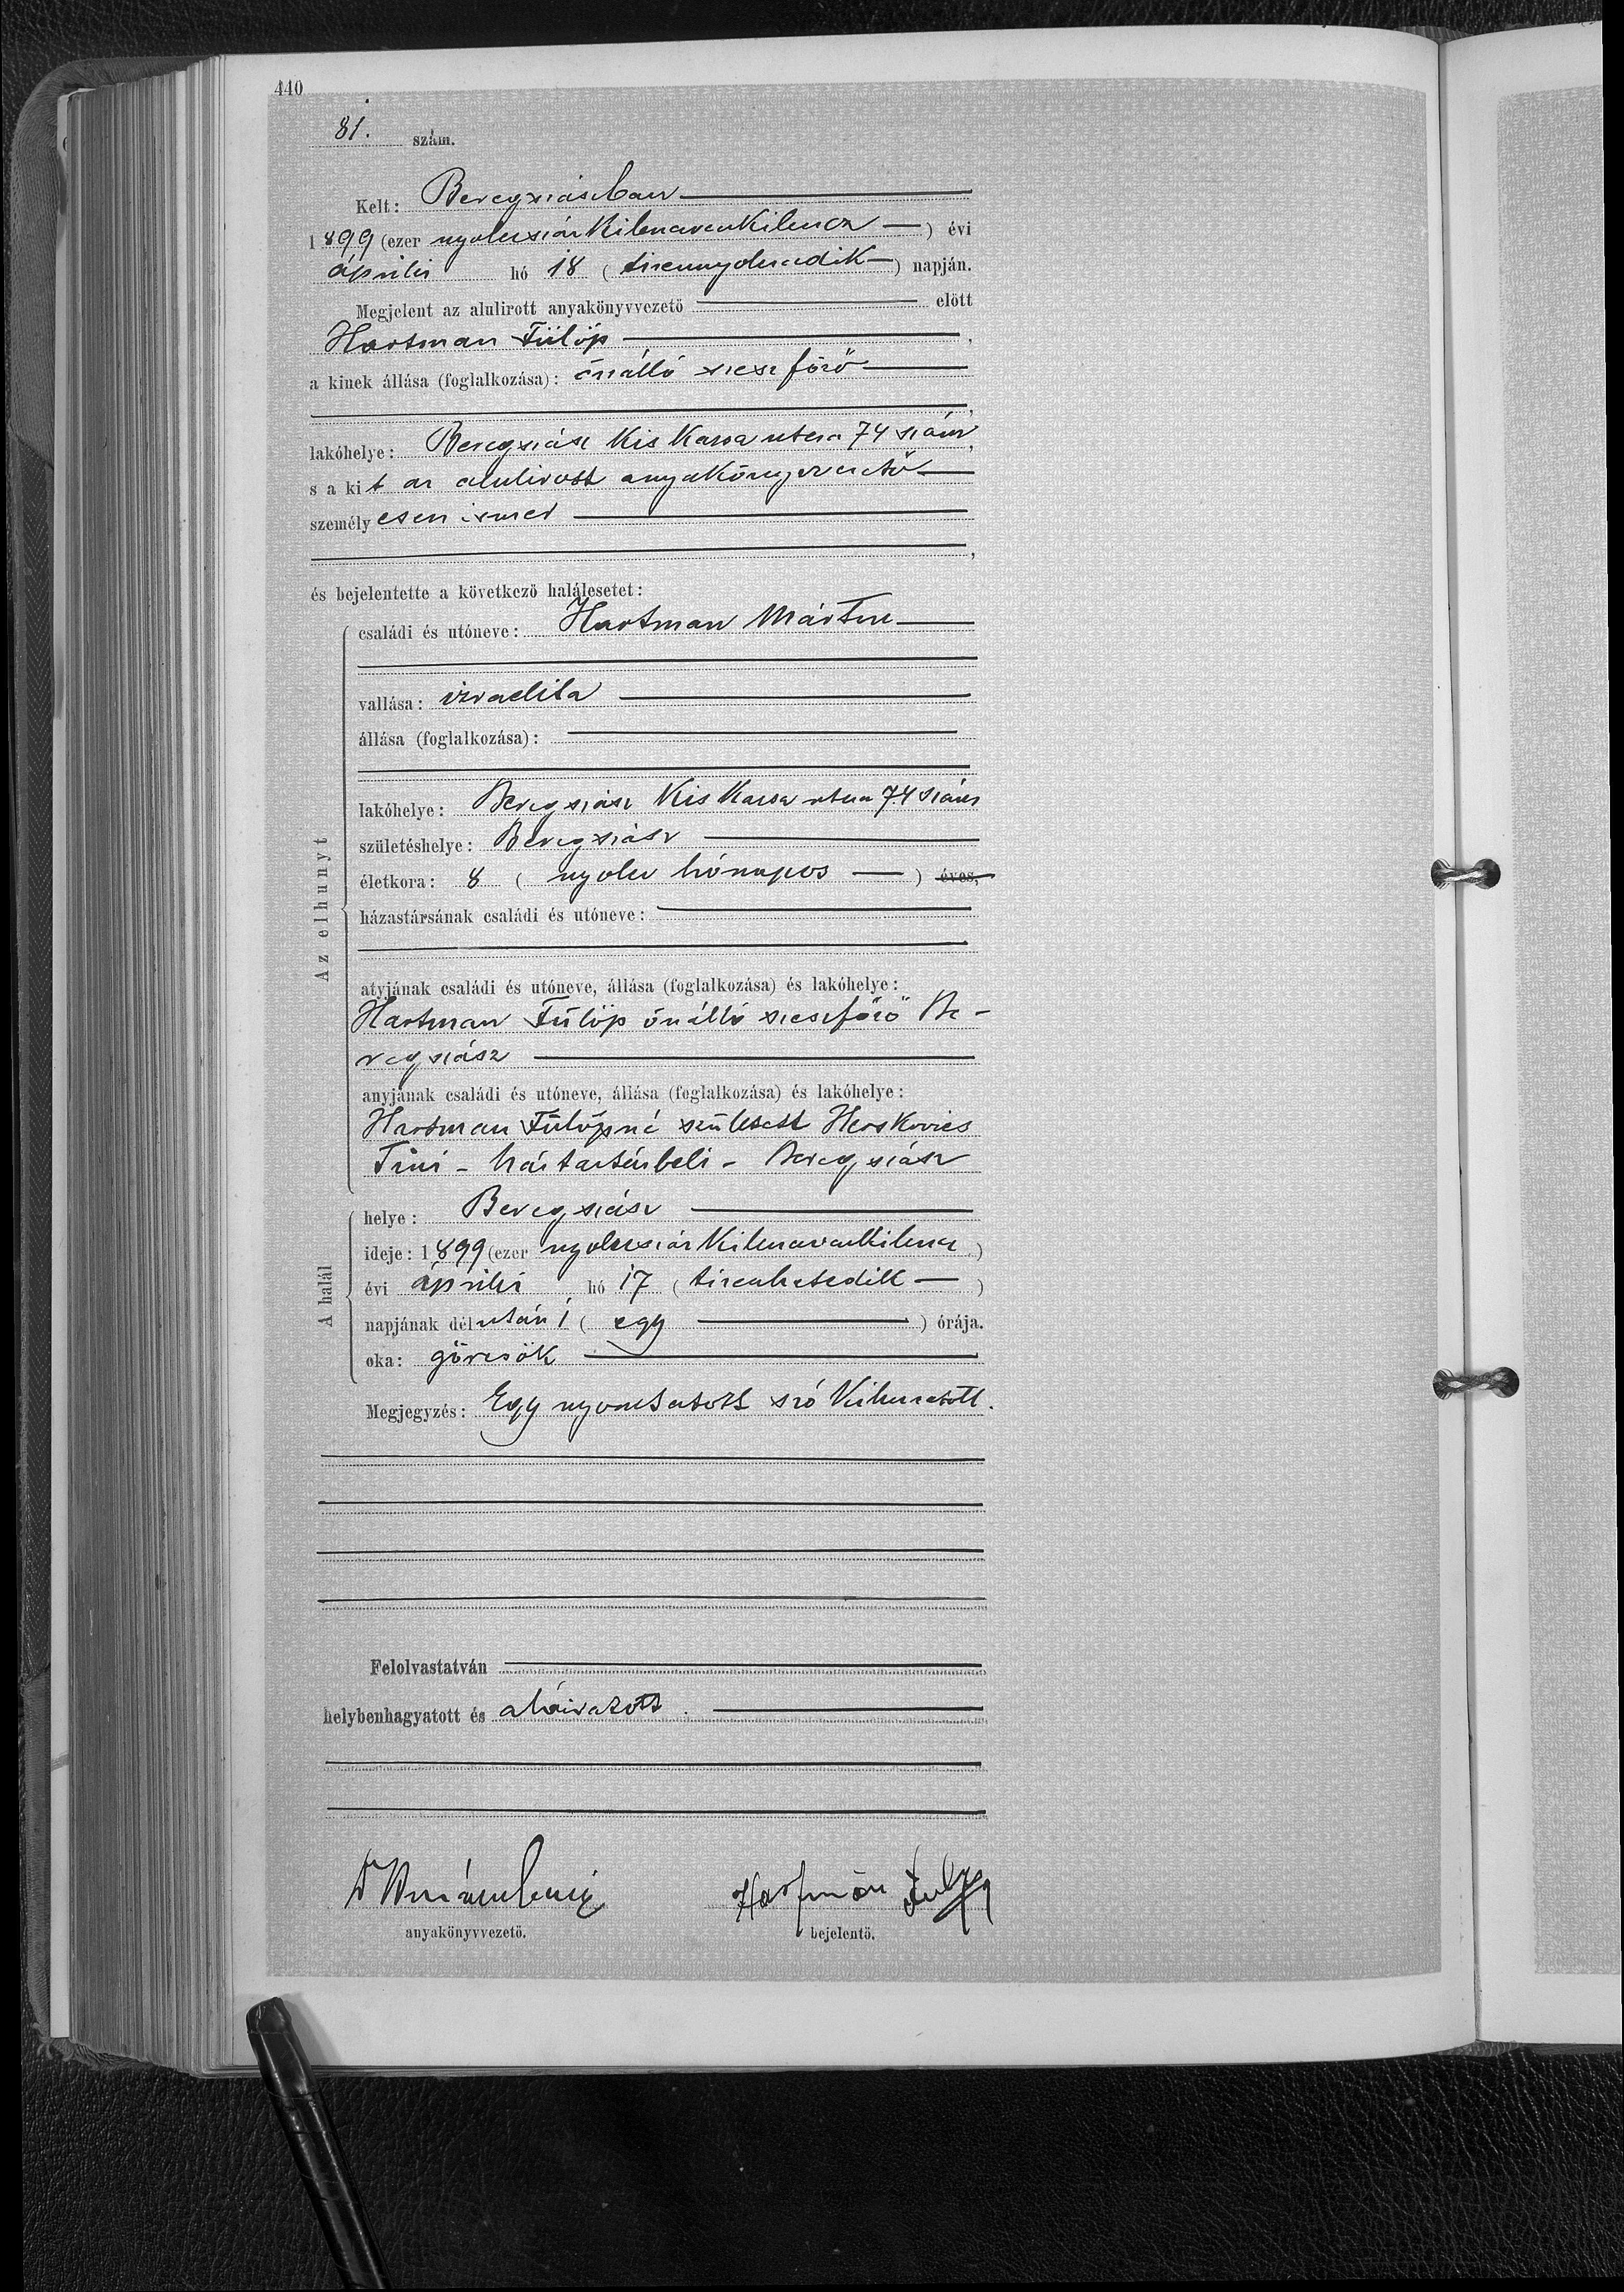 440
81. szám.
Kelt: Beregszászban
1899 (ezer nyolczszázkilenczvenkilencz) évi
április hó 18 (tizennyolczadik) napján.
Megjelent az alulirott anyakönyvvezető előtt
Hartman Fülöp,
a kinek állása (foglalkozása): önálló szeszfőző
,
lakóhelye: Beregszász Kis Kassa utcza 74 szám,
s a kit az alulirott anyakönyvvezető
személyesen ismer
,
és bejelentette a következő halálesetet:
Az elhunyt
családi és utóneve: Hartman Márton
vallása: izraelita
állása (foglalkozása):
lakóhelye: Beregszász Kis Kassa utcza 74 szám
születéshelye: Beregszász
életkora: 8 (nyolcz hónapos) éves,
házastársának családi és utóneve:
atyjának családi és utóneve, állása (foglalkozása) és lakóhelye:
Hartman Fülöp önálló szeszfőző Be-
regszász
anyjának családi és utóneve, állása (foglalkozása) és lakóhelye:
Hartman Fülöpné született Herskovics
Tini - háztartásbeli - Beregszász
A halál
helye: Beregszász
ideje: 1899 (ezer nyolczszázkilenczvenkilencz)
évi április hó 17 (tizenhetedik)
napjának délután 1 (egy) órája.
oka: görcsök
Megjegyzés: Egy nyomtatott szó kihuzatott.
Felolvastatván
helybenhagyatott és aláiratott.
Hartmán Fülöp
anyakönyvvezető. bejelentő.